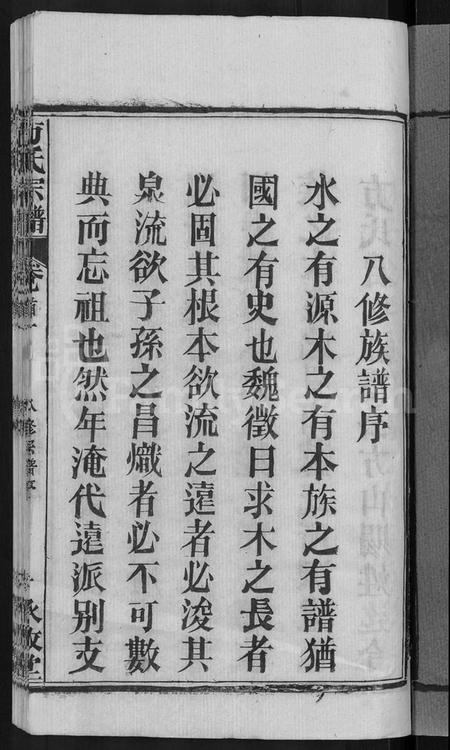 八修族譜序
水之有源木之有本族之有譜猶
國之有史也魏徵曰求木之長者
必固其根本欲流之遠者必浚其
泉流欲子孫之昌熾者必不可數
典而忘祖也然年淹代遠派别支
方氏宗譜
卷首一
八修宗譜序